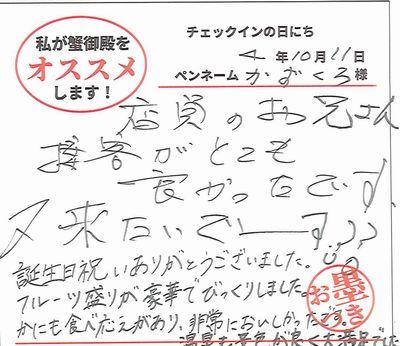 私が蟹御殿を
オススメ
します!
チェックインの日にち
4年10月11日
ペンネーム かずくろ様
店員のお兄さん
接客がとても
良かったです
又来たいでーす??
誕生日祝いありがとうございました。
フルーツ盛りが豪華でびっくりしました。
かにも食べ応えがあり、非常においしかったです。
温泉も景色が良く大満足でした
お墨つき